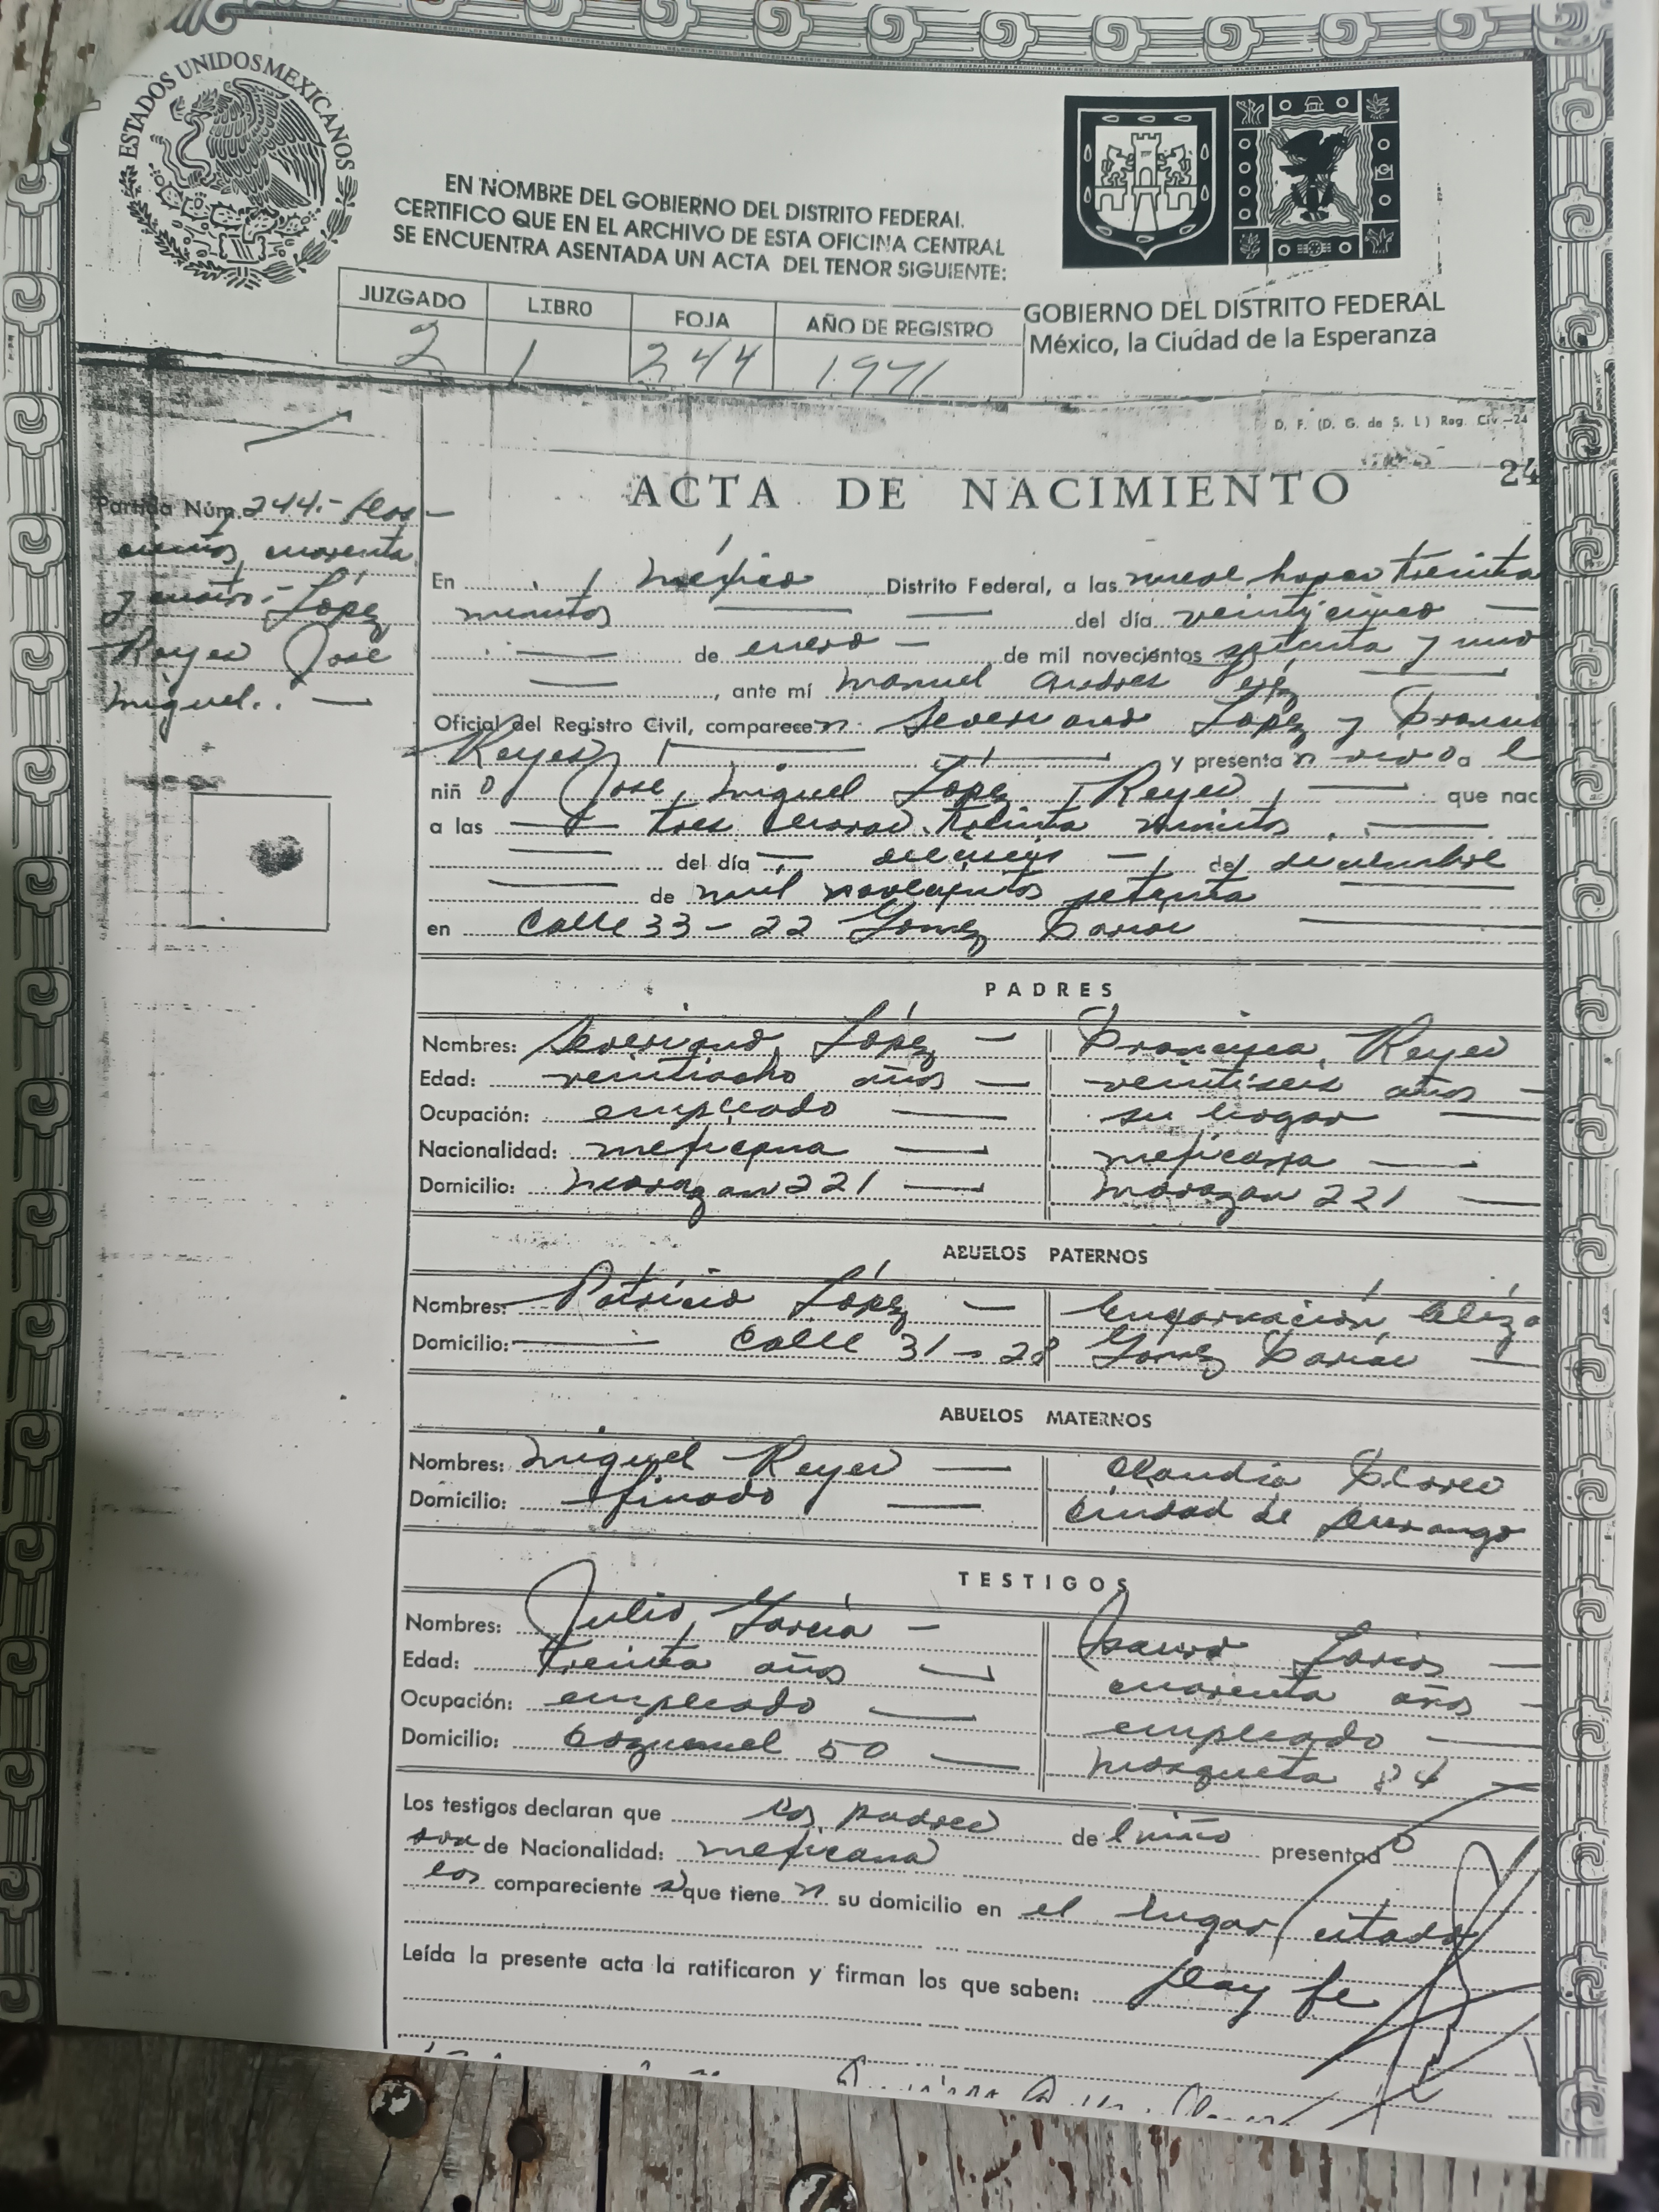 ESTADOS UNIDOS MEXICANOS
EN NOMBRE DEL GOBIERNO DEL DISTRITO FEDERAL
CERTIFICO QUE EN EL ARCHIVO DE ESTA OFICINA CENTRAL
SE ENCUENTRA ASENTADA UN ACTA DEL TENOR SIGUIENTE:
JUZGADO LIBRO FOJA AÑO DE REGISTRO
2 1 244 1971
GOBIERNO DEL DISTRITO FEDERAL
México, la Ciudad de la Esperanza
D. F. (D. G. de S. L.) Reg. Civ.-24
24
ACTA DE NACIMIENTO
Partida Núm. 244.- dos
cientos cuarenta
y cuatro.- López
Reyes José
Miguel..
En México Distrito Federal, a las nueve horas treinta
minutos del día veinticinco
de enero de mil novecientos setenta y uno
, ante mí Manuel Andres
Oficial del Registro Civil, comparecen Severiano López y
Reyes y presentan vivo a l
niño José Miguel López Reyes que nac
a las tres horas treinta minutos
del día dieciseis de diciembre
de mil novecientos setenta
en Calle 33-22 Gómez Farías
PADRES
Nombres: Severiano López Francisca Reyes
Edad: veintiocho años veintiseis años
Ocupación: empleado su hogar
Nacionalidad: mexicana mexicana
Domicilio: Morazan 221 Morazan 221
ABUELOS PATERNOS
Nombres: Patricio López Encarnación
Domicilio: Calle 31-28 Gómez Farías
ABUELOS MATERNOS
Nombres: Miguel Reyes Claudia
Domicilio: finado Ciudad de Durango
TESTIGOS
Nombres: Julio García Isauro
Edad: treinta años cuarenta años
Ocupación: empleado empleado
Domicilio: Cozumel 50 Mosqueta 84
Los testigos declaran que los padres del niño presentado
son de Nacionalidad: mexicana
los comparecientes que tienen su domicilio en el lugar citado
Leída la presente acta la ratificaron y firman los que saben: Doy fe